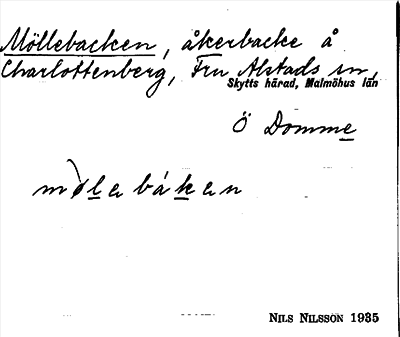 Möllebacken, åkerbacke å
Charlottenberg, Fru Alstads sn,
Skytts härad, Malmöhus län
Ö Domme
mølebåken
NILS NILSSON 1935